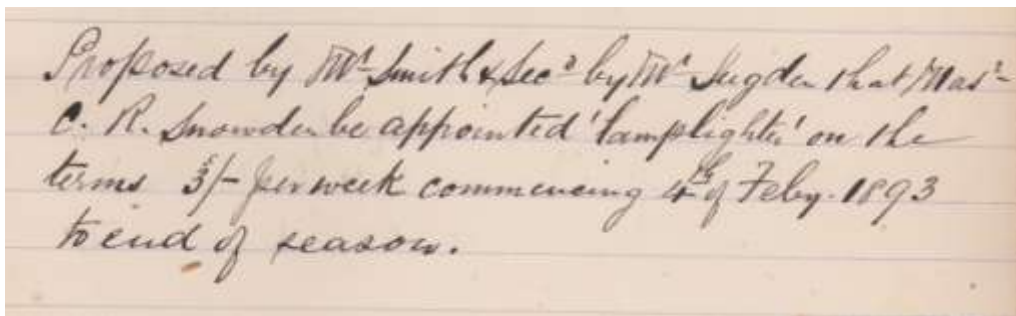 Proposed by Mr Smith & Secd by Mr Sugden that Masr
C. R. Snowden be appointed 'lamplighter' on the
terms 3/- per week commencing 4th of Feby. 1893
to end of season.